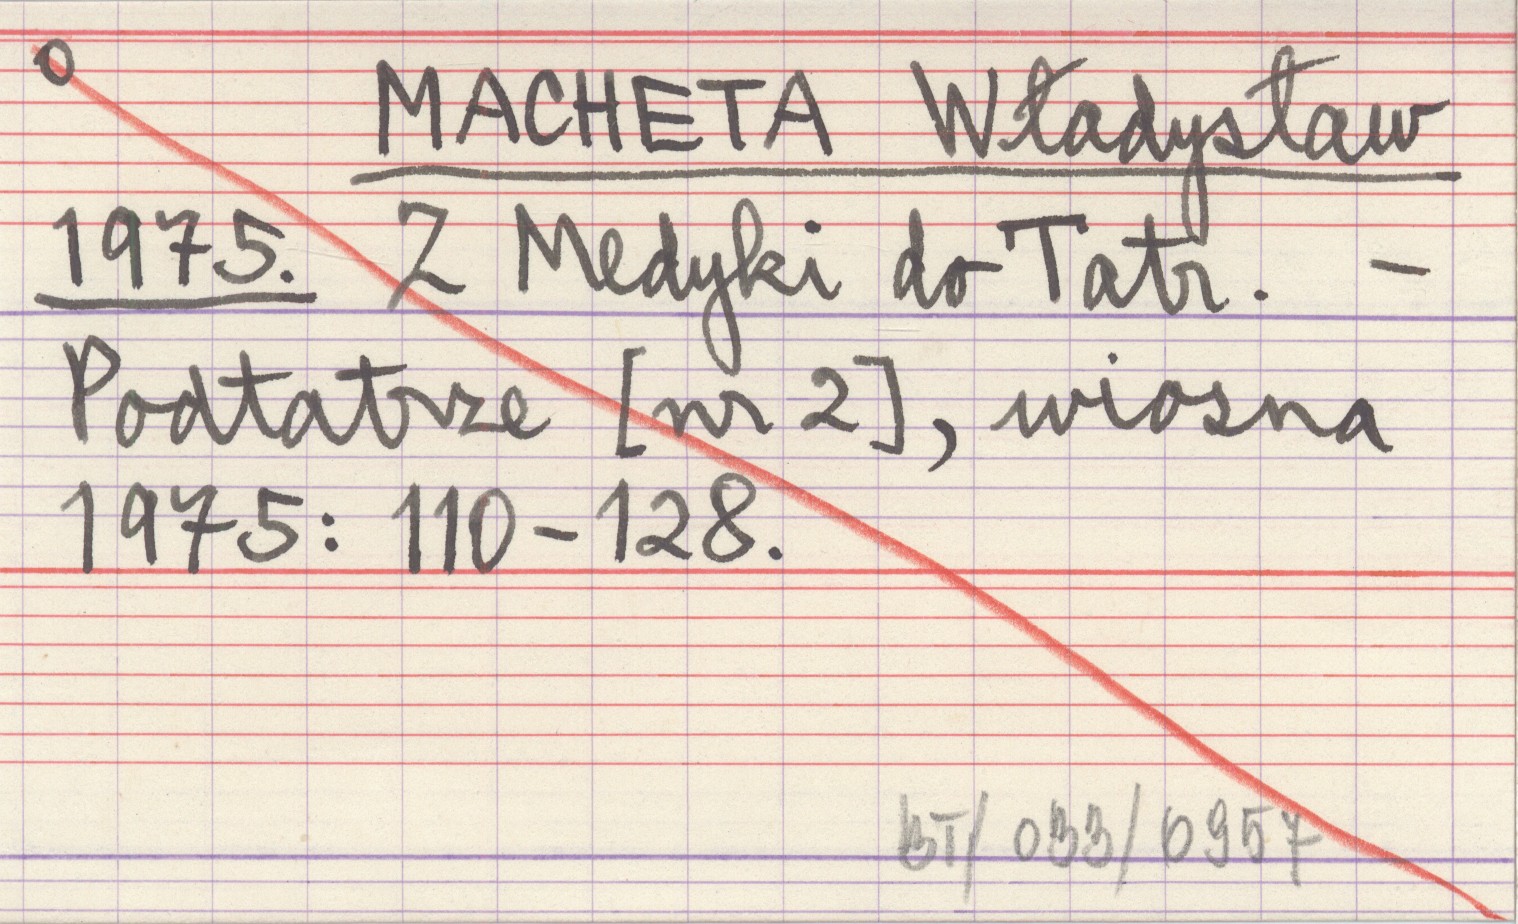 O
MACHETA Władysław
1975. Z Medyki do Tatr. -
Podtatrze [nr 2], wiosna
1975: 110-128.
BT/033/0957